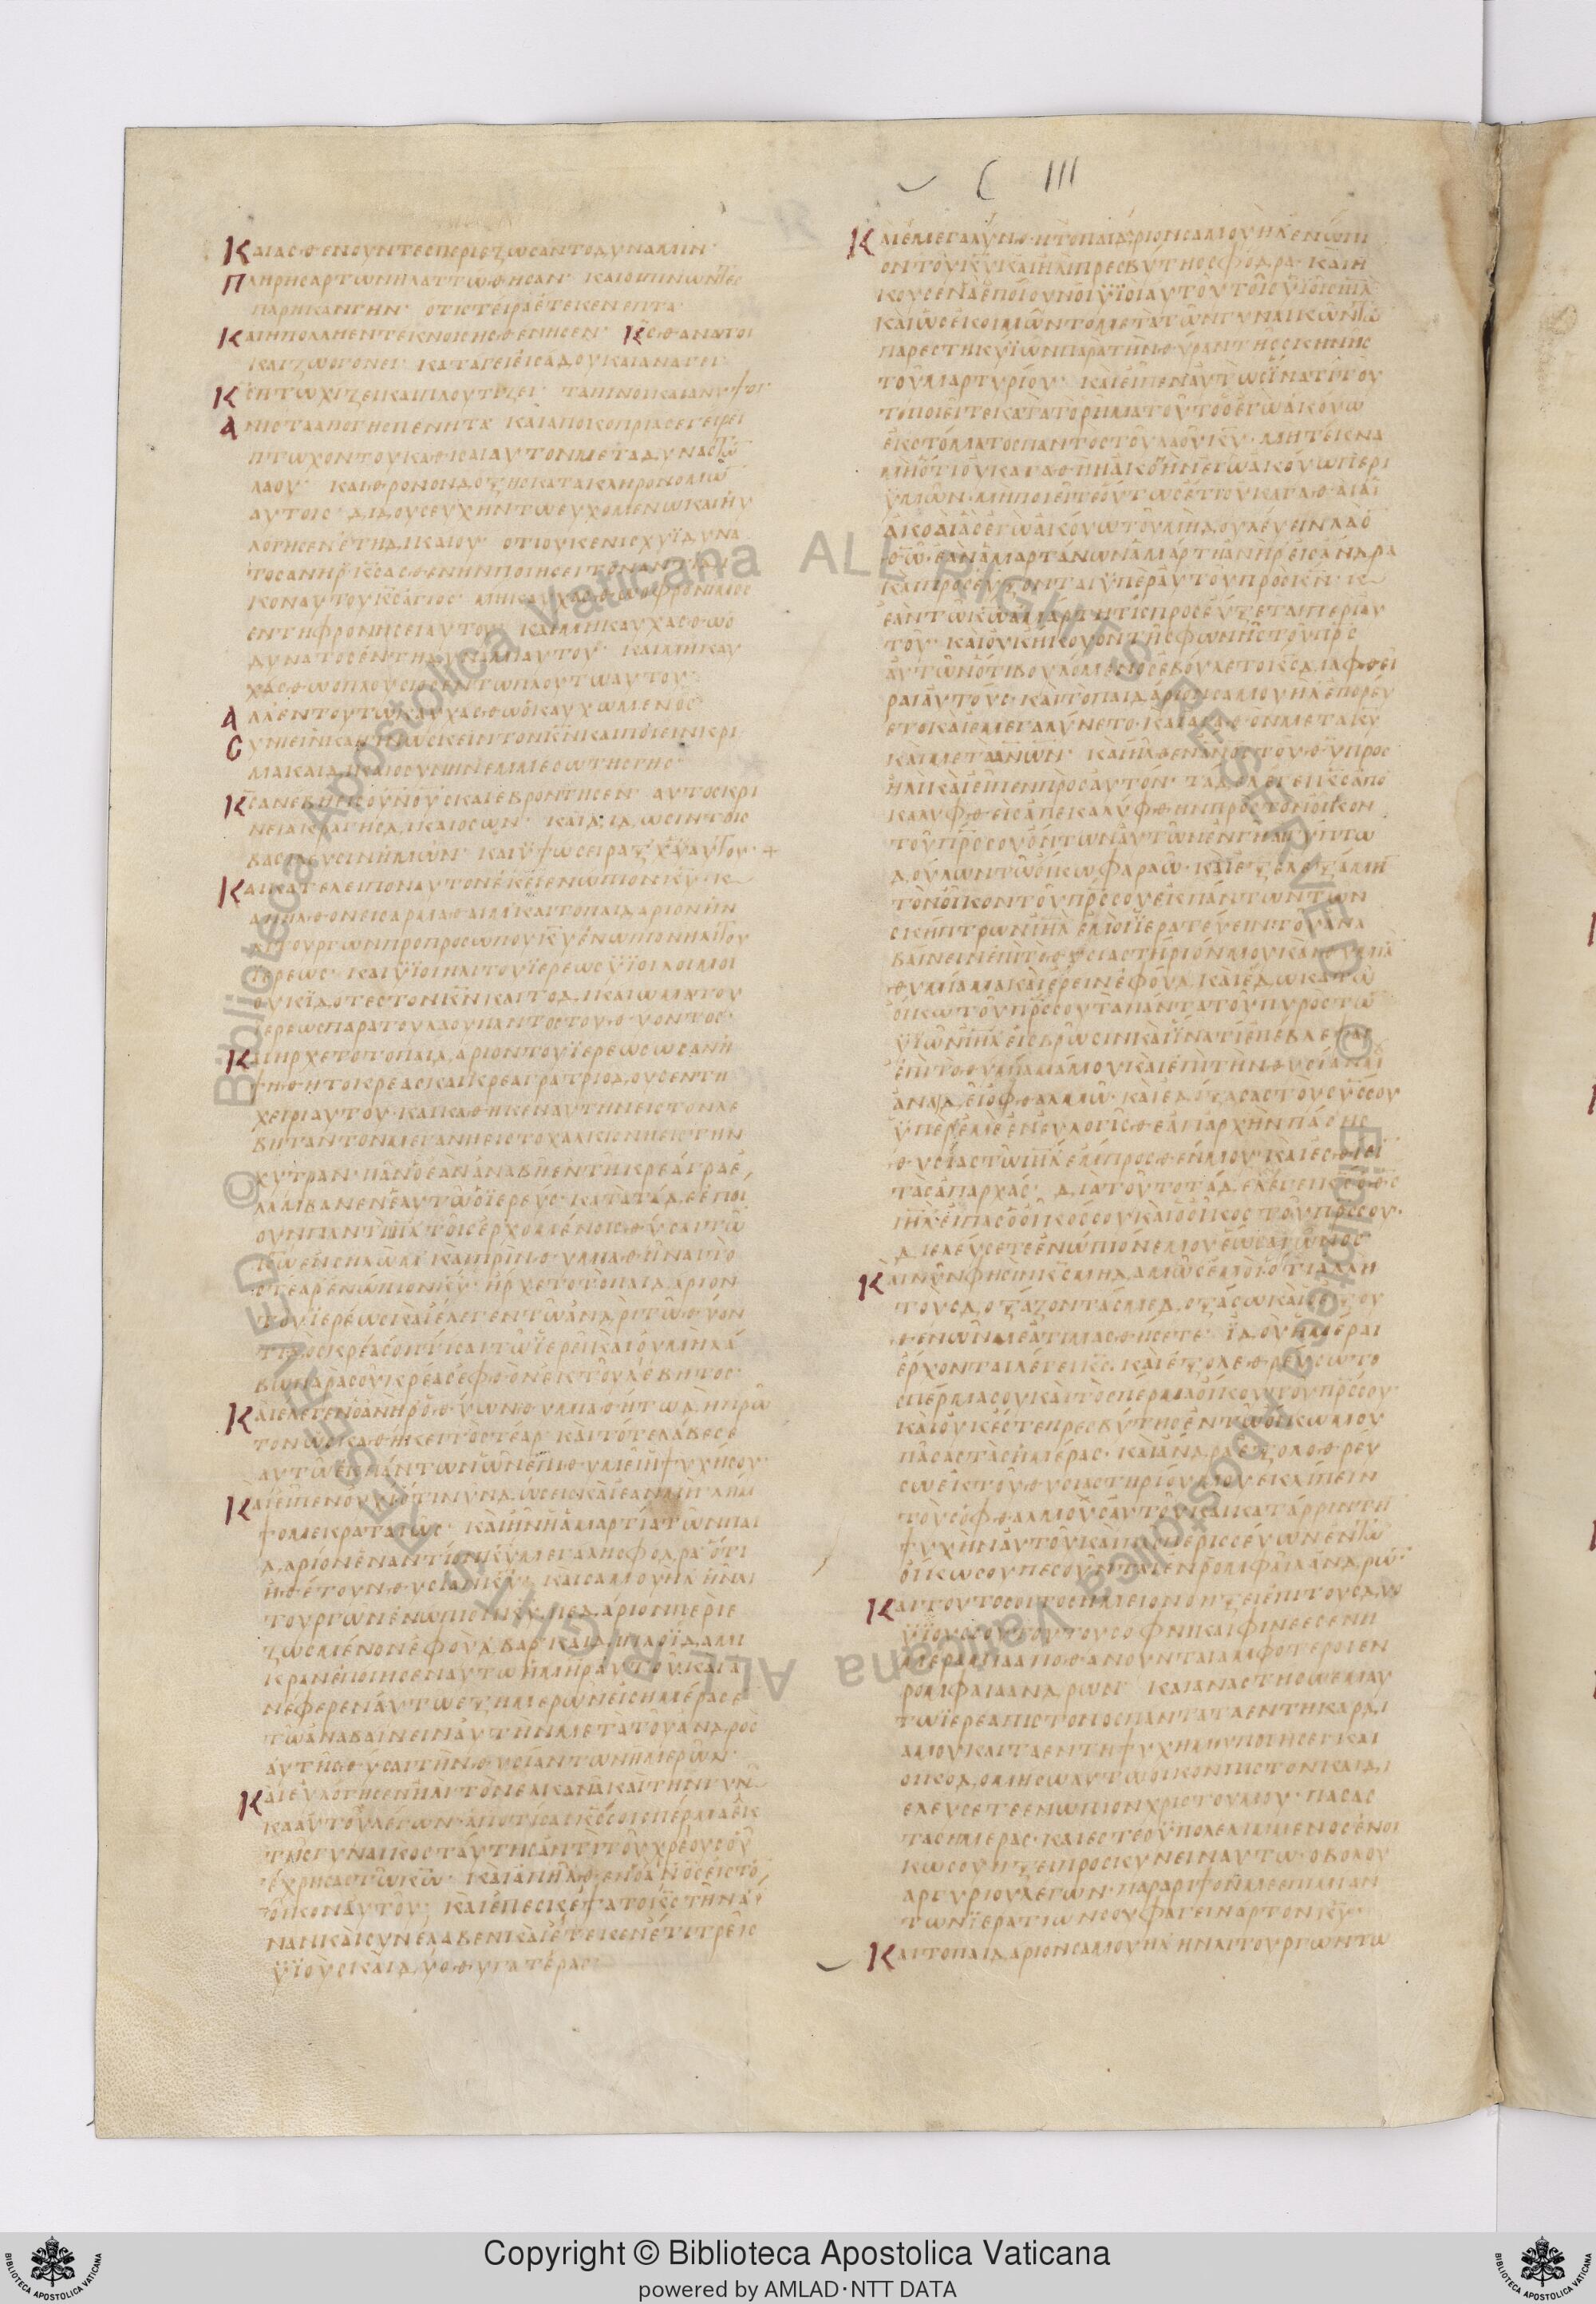 C III
ΚΑΙΑΣΘΕΝΟΥΝΤΕΣΠΕΡΙΕΖΩΣΑΝΤΟΔΥΝΑΜΙΝ·
ΠΛΗΡΗΣΑΡΤΩΝΗΛΑΤΤΩΘΗΣΑΝ· ΚΑΙΟΙΠΙΝΩΝΤΕΣ
ΠΑΡΗΚΑΝΓΗΝ· ΟΤΙΣΤΕΙΡΑΕΤΕΚΕΝΕΠΤΑ·
ΚΑΙΗΠΟΛΛΗΕΝΤΕΚΝΟΙΣΗΣΘΕΝΗΣΕΝ· ΚΣΘΑΝΑΤΟΙ
ΚΑΙΖΩΟΓΟΝΕΙ· ΚΑΤΑΓΕΙΕΙΣΑΔΟΥΚΑΙΑΝΑΓΕΙ·
ΚΣΠΤΩΧΙΖΕΙΚΑΙΠΛΟΥΤΙΖΕΙ· ΤΑΠΙΝΟΙΚΑΙΑΝΥΨΟΙ·
ΑΝΙΣΤΑΑΠΟΓΗΣΠΕΝΗΤΑ· ΚΑΙΑΠΟΚΟΠΡΙΑΣΕΓΕΙΡΕΙ
ΠΤΩΧΟΝΤΟΥΚΑΘΙΣΑΙΑΥΤΟΝΜΕΤΑΔΥΝΑΣΤΩ
ΛΑΟΥ· ΚΑΙΘΡΟΝΟΝΔΟΞΗΣΚΑΤΑΚΛΗΡΟΝΟΜΩ
ΑΥΤΟΙΣ· ΔΙΔΟΥΣΕΥΧΗΝΤΩΕΥΧΟΜΕΝΩΚΑΙΗΥ
ΛΟΓΗΣΕΝΕΤΗΔΙΚΑΙΟΥ· ΟΤΙΟΥΚΕΝΙΣΧΥΪΔΥΝΑ
ΤΟΣΑΝΗΡ·ΚΣΑΣΘΕΝΗΝΠΟΙΗΣΕΙΤΟΝΑΝΤΙΔΙ
ΚΟΝΑΥΤΟΥΚΣΑΓΙΟΣ· ΜΗΚΑΥΧΑΣΘΩΟΦΡΟΝΙΜΟΣ
ΕΝΤΗΦΡΟΝΗΣΕΙΑΥΤΟΥ· ΚΑΙΜΗΚΑΥΧΑΣΘΩΟ
ΔΥΝΑΤΟΣΕΝΤΗΔΥΝΑΜΙΑΥΤΟΥ· ΚΑΙΜΗΚΑΥ
ΧΑΣΘΩΟΠΛΟΥΣΙΟΣΕΝΤΩΠΛΟΥΤΩΑΥΤΟΥ·
ΑΛΛΕΝΤΟΥΤΩΚΑΥΧΑΣΘΩΟΚΑΥΧΩΜΕΝΟΣ·
ΣΥΝΙΕΙΝΚΑΙΓΙΝΩΣΚΕΙΝΤΟΝΚΝΚΑΙΠΟΙΕΙΝΚΡΙ
ΜΑΚΑΙΔΙΚΑΙΟΣΥΝΗΝΕΜΜΕΣΩΤΗΣΓΗΣ·
ΚΣΑΝΕΒΗΕΙΣΟΥΝΟΥΣΚΑΙΕΒΡΟΝΤΗΣΕΝ· ΑΥΤΟΣΚΡΙ
ΝΕΙΑΚΡΑΓΗΣΔΙΚΑΙΟΣΩΝ· ΚΑΙΔΙΔΩΣΙΝΤΟΙΣ
ΒΑΣΙΛΕΥΣΙΝΗΜΩΝ· ΚΑΙΥΨΩΣΕΙΡΑΣΧΥΑΥΤΟΥ·+
ΚΑΙΚΑΤΕΛΕΙΠΟΝΑΥΤΟΝΕΚΕΙΕΝΩΠΙΟΝΚΥ·Κ
ΑΠΗΛΘΟΝΕΙΣΑΡΜΑΘΑΙΜ·ΚΑΙΤΟΠΑΙΔΑΡΙΟΝΗΝ
ΛΙΤΟΥΡΓΩΝΠΡΟΠΡΟΣΩΠΟΥΚΥΕΝΩΠΙΟΝΗΛΙΤΟΥ
ΪΕΡΕΩΣ· ΚΑΙΫΪΟΙΗΛΙΤΟΥΪΕΡΕΩΣΫΪΟΙΛΟΙΜΟΙ
ΟΥΚΪΔΟΤΕΣΤΟΝΚΝΚΑΙΤΟΔΙΚΑΙΩΜΑΤΟΥ
ΪΕΡΕΩΣΠΑΡΑΤΟΥΛΑΟΥΠΑΝΤΟΣΤΟΥΘΥΟΝΤΟΣ·
ΚΑΙΗΡΧΕΤΟΤΟΠΑΙΔΑΡΙΟΝΤΟΥΪΕΡΕΩΣΩΣΑΝΗ
ΨΗΘΗΤΟΚΡΕΑΣΚΑΙΚΡΕΑΓΡΑΤΡΙΟΔΟΥΣΕΝΤΗ
ΧΕΙΡΙΑΥΤΟΥ·ΚΑΙΚΑΘΗΚΕΝΑΥΤΗΝΕΙΣΤΟΝΛΕ
ΒΗΤΑΝΤΟΝΜΕΓΑΝΗΕΙΣΤΟΧΑΛΚΙΟΝΗΕΙΣΤΗΝ
ΧΥΤΡΑΝ·ΠΑΝΟΕΑΝΑΝΑΒΗΕΝΤΗΚΡΕΑΓΡΑΕ
ΛΑΜΒΑΝΕΝΕΑΥΤΩΟΪΕΡΕΥΣ·ΚΑΤΑΤΑΔΕΕΠΟΙ
ΟΥΝΠΑΝΤΙΙΗΛΤΟΙΣΕΡΧΟΜΕΝΟΙΣΘΥΣΑΙΤΩ
ΚΩΕΝΣΗΛΩΜ·ΚΑΙΠΡΙΝΘΥΜΙΑΘΗΝΑΙΤΟ
ΣΤΕΑΡΕΝΩΠΙΟΝΚΥ· ΗΡΧΕΤΟΤΟΠΑΙΔΑΡΙΟΝ
ΤΟΥΪΕΡΕΩΣΚΑΙΕΛΕΓΕΝΤΩΑΝΔΡΙΤΩΘΥΟΝ
ΤΙΔΟΣΚΡΕΑΣΟΠΤΙΣΑΙΤΩΪΕΡΕΙΚΑΙΟΥΜΗΛΑ
ΒΩΠΑΡΑΣΟΥΚΡΕΑΣΕΦΘΟΝΕΚΤΟΥΛΕΒΗΤΟΣ·
ΚΑΙΕΛΕΓΕΝΟΑΝΗΡΟΘΥΩΝΘΥΜΙΑΘΗΤΩΔΗΠΡΩ
ΤΟΝΩΣΚΑΘΗΚΕΙΤΟΣΤΕΑΡ· ΚΑΙΤΟΤΕΛΑΒΕΣΕ
ΑΥΤΩΕΚΠΑΝΤΩΝΩΝΕΠΙΘΥΜΕΙΗΨΥΧΗΣΟΥ·
ΚΑΙΕΙΠΕΝΟΥΧΙΟΤΙΝΥΝΔΩΣΕΙΣΚΑΙΕΑΝΜΗΛΗΜ
ΨΟΜΕΚΡΑΤΑΙΩΣ· ΚΑΙΗΝΗΑΜΑΡΤΙΑΤΩΝΠΑΙ
ΔΑΡΙΟΝΕΝΑΝΤΙΟΝΚΥΜΕΓΑΛΗΣΦΟΔΡΑ·ΟΤΙ
ΗΘΕΤΟΥΝΘΥΣΙΑΝΚΥ· ΚΑΙΣΑΜΟΥΗΛΗΝΛΙ
ΤΟΥΡΓΩΝΕΝΩΠΙΟΝΚΥΠΕΔΑΡΙΟΝΠΕΡΙΕ
ΖΩΣΜΕΝΟΝΕΦΟΥΔΒΑΡ·ΚΑΙΔΙΠΛΟΪΔΑΜΙ
ΚΡΑΝΕΠΟΙΗΣΕΝΑΥΤΩΗΜΗΡΑΥΤΟΥΚΑΙΑ
ΝΕΦΕΡΕΝΑΥΤΩΕΞΗΜΕΡΩΝΕΙΣΗΜΕΡΑΣΕ
ΤΩΑΝΑΒΑΙΝΕΙΝΑΥΤΗΝΜΕΤΑΤΟΥΑΝΔΡΟΣ
ΑΥΤΗΣΘΥΣΑΙΤΗΝΘΥΣΙΑΝΤΩΝΗΜΕΡΩΝ·
ΚΑΙΕΥΛΟΓΗΣΕΝΗΛΙΤΟΝΕΛΚΑΝΑΚΑΙΤΗΝΓΥΝ
ΚΑΑΥΤΟΥΛΕΓΩΝ·ΑΠΟΤΙΣΑΣΚΣΣΟΙΣΠΕΡΜΑΕΚ
ΤΗΣΓΥΝΑΙΚΟΣΤΑΥΤΗΣΑΝΤΙΤΟΥΧΡΕΟΥΣΟΥ
ΕΧΡΗΣΑΣΤΩΚΩ· ΚΑΙΑΠΗΛΘΕΝΟΑΝΟΣΕΙΣΤΟ
ΟΙΚΟΝΑΥΤΟΥ· ΚΑΙΕΠΕΣΚΕΨΑΤΟΚΣΤΗΝΑ
ΝΑΝΚΑΙΣΥΝΕΛΑΒΕΝΚΑΙΕΤΕΚΕΝΕΤΙΤΡΕΙΣ
ΫΪΟΥΣΚΑΙΔΥΟΘΥΓΑΤΕΡΑΣ·
ΚΑΙΕΜΕΓΑΛΥΝΘΗΤΟΠΑΙΔΑΡΙΟΝΣΑΜΟΥΗΛΕΝΩΠΙ
ΟΝΤΟΥΚΥΚΑΙΗΛΙΠΡΕΣΒΥΤΗΣΣΦΟΔΡΑ· ΚΑΙΗ
ΚΟΥΣΕΝΑΕΠΟΙΟΥΝΟΙΫΪΟΙΑΥΤΟΥΤΟΙΣΫΪΟΙΣΙΗΛ·
ΚΑΙΩΣΕΚΟΙΜΩΝΤΟΜΕΤΑΤΩΝΓΥΝΑΙΚΩΝΤΩ
ΠΑΡΕΣΤΗΚΥΪΩΝΠΑΡΑΤΗΝΘΥΡΑΝΤΗΣΣΚΗΝΗΣ
ΤΟΥΜΑΡΤΥΡΙΟΥ· ΚΑΙΕΙΠΕΝΑΥΤΩΣΪΝΑΤΙΤΟΥ
ΤΟΠΟΙΕΙΤΕΚΑΤΑΤΟΡΗΜΑΤΟΥΤΟΟΕΓΩΑΚΟΥΩ
ΕΚΣΤΟΜΑΤΟΣΠΑΝΤΟΣΤΟΥΛΑΟΥΚΥ· ΜΗΤΕΚΝΑ
ΜΗΟΤΙΟΥΚΑΓΑΘΗΗΑΚΟΗΗΝΕΓΩΑΚΟΥΩΠΕΡΙ
ΫΜΩΝ·ΜΗΠΟΙΕΙΤΕΟΥΤΩΣΟΤΙΟΥΚΑΓΑΘΑΙΑΙ
ΑΚΟΑΙΑΣΕΓΩΑΚΟΥΩΤΟΥΜΗΔΟΥΛΕΥΕΙΝΛΑΟ
ΘΩ·ΕΑΝΑΜΑΡΤΑΝΩΝΑΜΑΡΤΗΑΝΗΡΕΙΣΑΝΔΡΑ
ΚΑΙΠΡΟΣΕΥΞΟΝΤΑΙΫΠΕΡΑΥΤΟΥΠΡΟΣΚΝ· Κ
ΕΑΝΤΩΚΩΑΜΑΡΤΗΤΙΣΠΡΟΣΕΥΞΕΤΑΙΠΕΡΙΑΥ
ΤΟΥ· ΚΑΙΟΥΚΗΚΟΥΟΝΤΗΣΦΩΝΗΣΤΟΥΠΡΣ
ΑΥΤΩΝΟΤΙΒΟΥΛΟΜΕΝΟΣΕΒΟΥΛΕΤΟΚΣΔΙΑΦΘΕΙ
ΡΑΙΑΥΤΟΥΣ·ΚΑΙΤΟΠΑΙΔΑΡΙΟΝΣΑΜΟΥΗΛΕΠΟΡΕΥ
ΕΤΟΚΑΙΕΜΕΓΑΛΥΝΕΤΟ·ΚΑΙΑΓΑΘΟΝΜΕΤΑΚΥ
ΚΑΙΜΕΤΑΑΝΩΝ· ΚΑΙΗΛΘΕΝΑΝΟΣΤΟΥΘΥΠΡΟΣ
ΗΛΙΚΑΙΕΙΠΕΝΠΡΟΣΑΥΤΟΝ· ΤΑΔΕΛΕΓΕΙΚΣΑΠΟ
ΚΑΛΥΦΘΕΙΣΑΠΕΚΑΛΥΦΘΗΝΠΡΟΣΤΟΝΟΙΚΟΝ
ΤΟΥΠΡΣΣΟΥΟΝΤΩΝΑΥΤΩΝΕΝΓΗΑΙΓΥΠΤΩ
ΔΟΥΛΩΝΤΩΟΙΚΩΦΑΡΑΩ·ΚΑΙΕΞΕΛΕΞΑΜΗ
ΤΟΝΟΙΚΟΝΤΟΥΠΡΣΣΟΥΕΚΠΑΝΤΩΝΤΩΝ
ΣΚΗΠΤΡΩΝΙΗΛΕΜΟΙΪΕΡΑΤΕΥΕΙΝΤΟΥΑΝΑ
ΒΑΙΝΕΙΝΕΠΙΤΟΘΥΣΙΑΣΤΗΡΙΟΝΜΟΥΚΑΙΘΥΜΙΑ
ΘΥΜΙΑΜΑΚΑΙΕΡΕΙΝΕΦΟΥΔ·ΚΑΙΕΔΩΚΑΤΩ
ΟΙΚΩΤΟΥΠΡΣΣΟΥΤΑΠΑΝΤΑΤΟΥΠΥΡΟΣΤΩ
ΫΪΩΝΙΗΛΕΙΣΒΡΩΣΙΝΚΑΙΪΝΑΤΙΕΠΕΒΛΕΨΑΣ
ΕΠΙΤΟΘΥΜΙΑΜΑΜΟΥΚΑΙΕΠΙΤΗΝΘΥΣΙΑΝΜ
ΑΝΑΙΔΕΙΟΦΘΑΛΜΩ·ΚΑΙΕΔΟΞΑΣΑΣΤΟΥΣΥΣΣΟΥ
ΫΠΕΡΕΜΕΕΝΕΥΛΟΓΙΣΘΕΑΠΑΡΧΗΝΠΑΣΗΣ
ΘΥΣΙΑΣΤΩΙΗΛΕΜΠΡΟΣΘΕΝΜΟΥ·ΚΑΙΕΣΘΙΕΙ
ΤΑΣΑΠΑΡΧΑΣ· ΔΙΑΤΟΥΤΟΤΑΔΕΛΕΓΕΙΚΣΟΘΣ
ΙΗΛΕΙΠΑΣΟΟΙΚΟΣΣΟΥΚΑΙΟΟΙΚΟΣΤΟΥΠΡΣΣΟΥ·
ΔΙΕΛΕΥΣΕΤΕΕΝΩΠΙΟΝΕΜΟΥΕΩΣΑΙΩΝΟΣ
ΚΑΙΝΥΝΦΗΣΙΝΚΣΜΗΔΑΜΩΣΕΜΟΙΟΤΙΑΛΛΗ
ΤΟΥΣΔΟΞΑΖΟΝΤΑΣΜΕΔΟΞΑΣΩΚΑΙΟΕΞΟΥ
ΘΕΝΩΝΜΕΑΤΙΜΑΣΘΗΣΕΤΕ· ΪΔΟΥΗΜΕΡΑΙ
ΕΡΧΟΝΤΑΙΛΕΓΕΙΚΣ·ΚΑΙΕΞΟΛΕΘΡΕΥΣΩΤΟ
ΣΠΕΡΜΑΣΟΥΚΑΙΤΟΣΠΕΡΜΑΟΙΚΟΥΤΟΥΠΡΣΣΟΥ·
ΚΑΙΟΥΚΕΣΤΕΠΡΕΣΒΥΤΗΣΕΝΤΩΟΙΚΩΜΟΥ
ΠΑΣΑΣΤΑΣΗΜΕΡΑΣ· ΚΑΙΑΝΔΡΑΕΞΟΛΟΘΡΕΥ
ΣΩΕΚΤΟΥΘΥΣΙΑΣΤΗΡΙΟΥΜΟΥΕΚΛΙΠΕΙΝ
ΤΟΥΣΟΦΘΑΛΜΟΥΣΑΥΤΟΥΚΑΙΚΑΤΑΡΡΙΝΤΗ
ΨΥΧΗΝΑΥΤΟΥΚΑΙΠΑΣΠΕΡΙΣΣΕΥΩΝΕΝΤΩ
ΟΙΚΩΣΟΥΠΕΣΟΥΝΤΑΙΕΝΡΟΜΦΑΙΑΑΝΔΡΩ·
ΚΑΙΤΟΥΤΟΣΟΙΤΟΣΗΜΕΙΟΝΟΗΞΕΙΕΠΙΤΟΥΣΔΥΟ
ΫΪΟΥΣΣΟΥΤΟΥΤΟΥΣΟΦΝΙΚΑΙΦΙΝΕΕΣΕΝΗ
ΜΕΡΑΜΙΑΑΠΟΘΑΝΟΥΝΤΑΙΑΜΦΟΤΕΡΟΙΕΝ
ΡΟΜΦΑΙΑΑΝΔΡΩΝ· ΚΑΙΑΝΑΣΤΗΣΩΕΜΑΥ
ΤΩΪΕΡΕΑΠΙΣΤΟΝΟΣΠΑΝΤΑΤΑΕΝΤΗΚΑΡΔΙ
ΑΜΟΥΚΑΙΤΑΕΝΤΗΨΥΧΗΜΟΥΠΟΙΗΣΕΙΚΑΙ
ΟΙΚΟΔΟΜΗΣΩΑΥΤΩΟΙΚΟΝΠΙΣΤΟΝΚΑΙΔΙ
ΕΛΕΥΣΕΤΕΕΝΩΠΙΟΝΧΡΙΣΤΟΥΜΟΥ· ΠΑΣΑΣ
ΤΑΣΗΜΕΡΑΣ·ΚΑΙΕΣΤΕΟΫΠΟΛΕΛΙΜΜΕΝΟΣΕΝΟΙ
ΚΩΣΟΥΗΞΕΙΠΡΟΣΚΥΝΕΙΝΑΥΤΩ·ΟΒΟΛΟΥ
ΑΡΓΥΡΙΟΥΛΕΓΩΝ·ΠΑΡΑΡΙΨΟΝΜΕΕΠΙΜΙΑΝ
ΤΩΝΪΕΡΑΤΙΩΝΣΟΥΦΑΓΕΙΝΑΡΤΟΝΚΥ·
ΚΑΙΤΟΠΑΙΔΑΡΙΟΝΣΑΜΟΥΗΛΗΝΛΙΤΟΥΡΓΩΝΤΩ
© Biblioteca Apostolica Vaticana ALL RIGHTS RESERVED
© Biblioteca Apostolica Vaticana ALL RIGHTS RESERVED
Copyright © Biblioteca Apostolica Vaticana
powered by AMLAD·NTT DATA
BIBLIOTECA APOSTOLICA VATICANA
BIBLIOTECA APOSTOLICA VATICANA